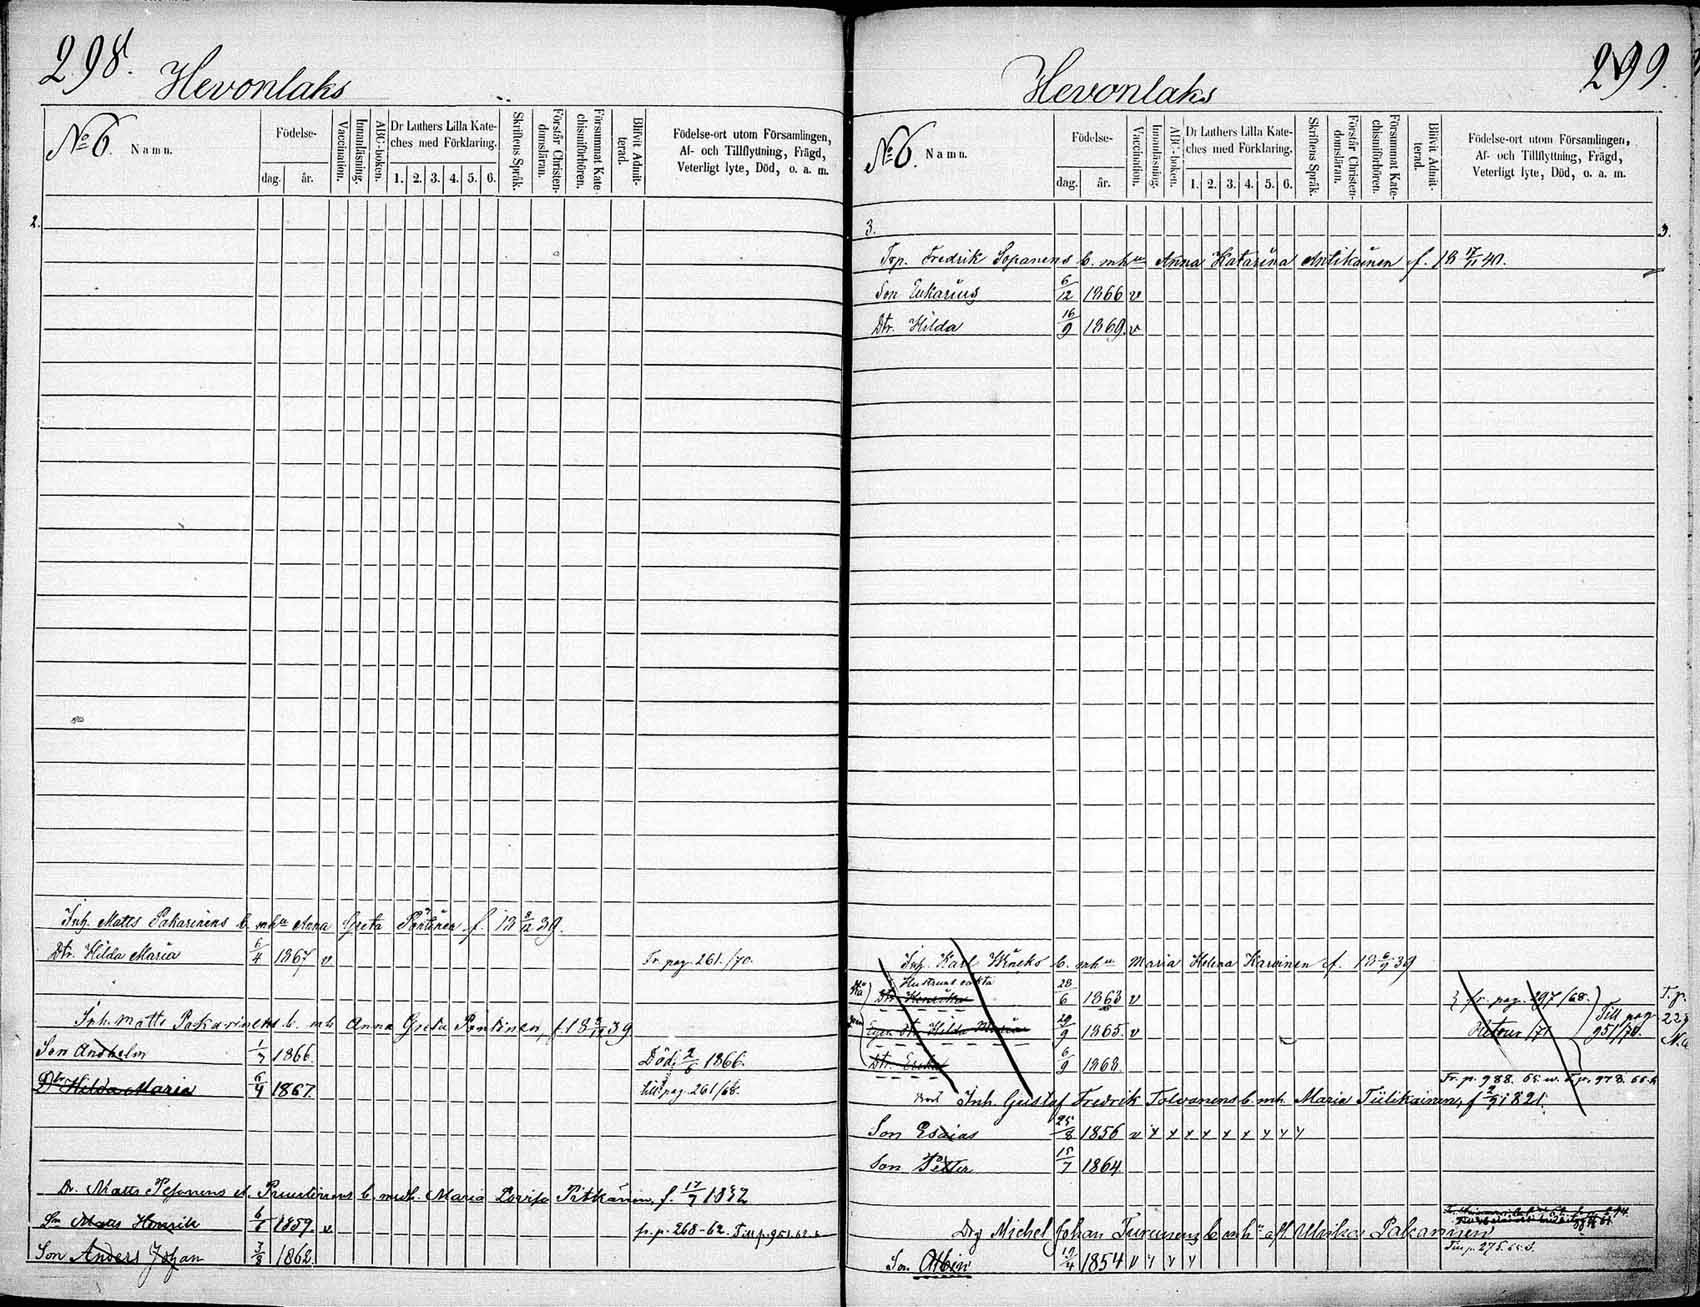 298.
Hevonlaks
No 6. Namn.
Födelse-
dag. år.
Vaccination.
Innanläsning.
ABC-boken.
Dr Luthers Lilla Kate-
ches med Förklaring.
1. 2. 3. 4. 5. 6.
Skriftens Språk.
Förstår Christen-
domsläran.
Försummat Kate-
chismiförhören.
Blifvit Admit-
terad.
Födelse-ort utom Församlingen,
Af- och Tillflyttning, Frägd,
Veterligt lyte, Död, o. a. m.
2.
Inh. Matts Pakarinens b. mhu Anna Greta Pöntinen f. 18 8/12 39.
Dtr. Hilda Maria 6/4 1867 v Fr. pag. 261./70.
Inh. Matts Pakarinens b. mh Anna Greta Pöntinen, f. 18 39
Son Andhelm 1/7 1866. Död 2/6 1866.
Dtr Hilda Maria 6/4 1867. till pag. 261/68.
Matts Pesonens b. msk. Maria Lovisa Pitkänen, f. 17/7 1832
Sn Matts Henrik 6/6 1859. v fr. p. 268-62. Till p. 951.
Son Anders Johan 7/8 1862.
299.
Hevonlaks
No 6. Namn.
Födelse-
dag. år.
Vaccination.
Innanläsning.
ABC-boken.
Dr Luthers Lilla Kate-
ches med Förklaring.
1. 2. 3. 4. 5. 6.
Skriftens Språk.
Förstår Christen-
domsläran.
Försummat Kate-
chismiförhören.
Blifvit Admit-
terad.
Födelse-ort utom Församlingen,
Af- och Tillflyttning, Frägd,
Veterligt lyte, Död, o. a. m.
3. 3.
Trp. Fredrik Sopanens b. mhu Anna Katarina Antikainen f. 18 17/11 40.
Son Eukarius 6/12 1866 v
Dtr. Hilda 16/9 1869. v
Inh. Karl b. mhu Maria Helena Karvinen f. 18 39
Hustruns oäkta
Dtr. 28/6 1863 v fr. pag. 297/68.
Egen dtr Hilda Maria 29/9 1865. v Retour /71 Till pag 951/70.
Dtr. 6/9 1868
Fr. p. 988. 65
Inh. Gustaf Fredrik Tolvanens b. mh. Maria Tiilikainen, f 2/9 1821
Son Esaias 25/8 1856 v y y y y y y y y
Son Petter 15/7 1864
Drg Michel Johan Turunens b. mh Ulrika Pakarinen
Till p. 275.65.
Son Albin 19/4 1854 v y y y